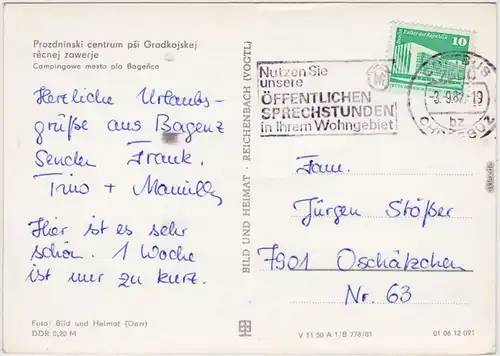 Prozdninski centrum pśi Grodkojskej
rěcnej zawerje
Campingowe mesto pla Bageńca
Herzliche Urlaubs-
grüße aus Bagenz
Senden Frank,
Tino + Mamilly
Hier ist es sehr
schön. 1 Woche
ist nur zu kurz.
Foto: Bild und Heimat (Darr)
DDR 0,20 M
BILD UND HEIMAT · REICHENBACH (VOGTL)
Nutzen Sie
unsere
ÖFFENTLICHEN
SPRECHSTUNDEN
in Ihrem Wohngebiet
10
COTTBUS
-3.-9.82-19
bz
CHOŚEBUZ
Fam.
Jürgen Stößer
7901 Oschätzchen
Nr. 63
V 11 50 A 1/B 778/81
01 06 12 091